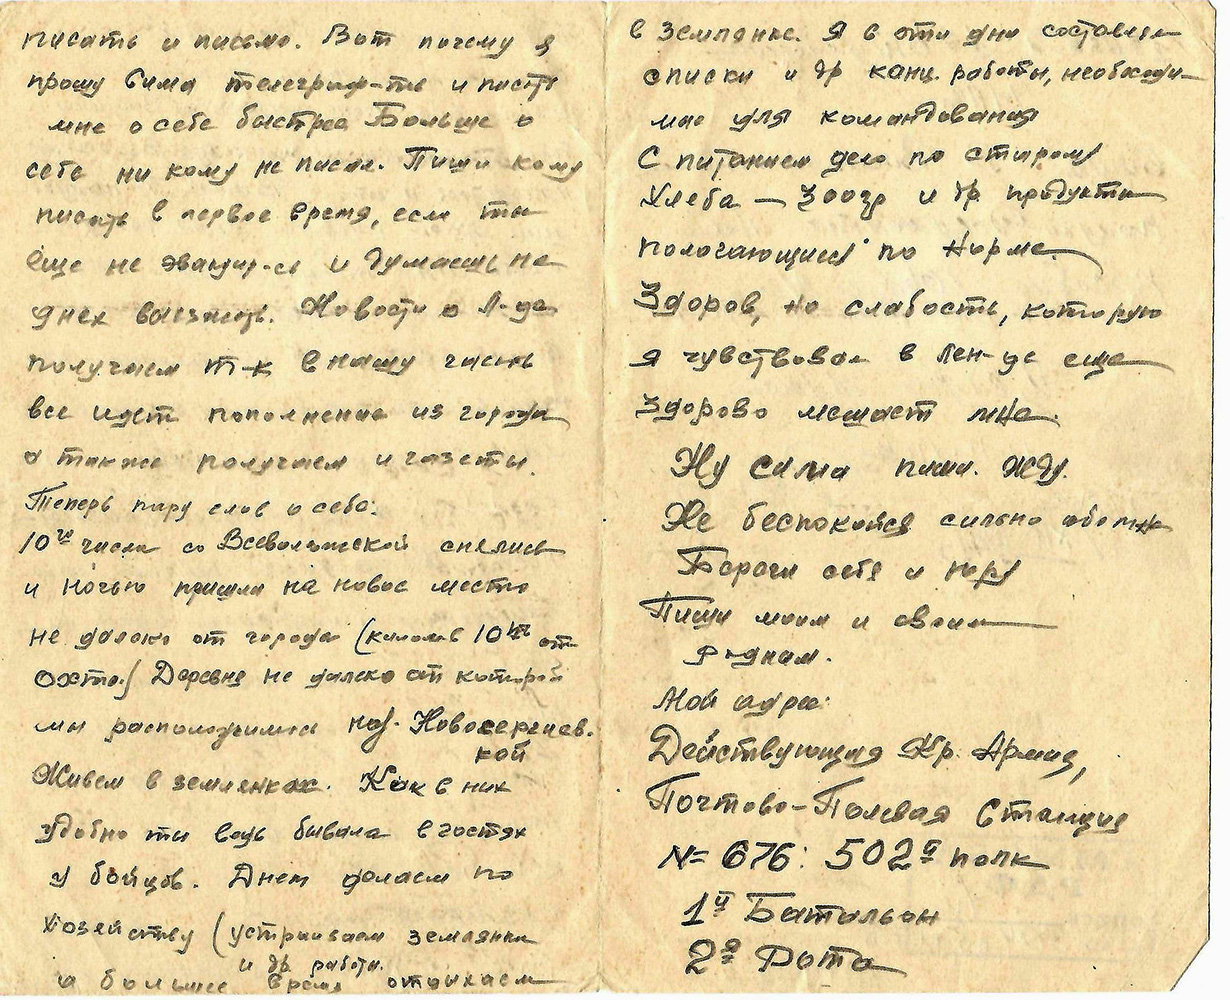 писать и письмо. Вот почему я
прошу Сима телеграф-ть и писать
мне о себе быстрее Больше о
себе ни кому не писал. Пиши кому
писать в первое время, если ты
еще не эвакуир-сь и думаешь на
днях выезжать. Новости о Л-де
получаем т-к в нашу часть
все идет пополнение из города
а также получаем и газеты.
Теперь пару слов о себе:
10го числа со Всеволжской снялись
и ночью пришли на новое место
не далеко от города (килом в 10ти от
Охты) Деревня не далеко от которой
мы расположились наз. Новосергиев-
кой
Живем в землянках. Как в них
удобно ты ведь бывала в гостях
у бойцов. Днем делаем по
хозяйству (устраиваем землянки
и др работы.
а больше время отдыхаем
в землянке. Я в эти дни составлял
списки и др канц. работы, необходи-
мые для командования
С питанием дело по старому
Хлеба — 300гр и др продукты
полагающиеся по норме.
Здоров, но слабость, которую
я чувствовал в Лен-де еще
здорово мешает мне.
Ну Сима пиши. Жду.
Не беспокойся сильно обо мне
Береги себя и Нору
Пиши моим и своим
Родным.
Мой адрес:
Действующая Кр. Армия,
Почтово-Полевая Станция
№ 676: 502й полк
1й Батальон
2я Рота